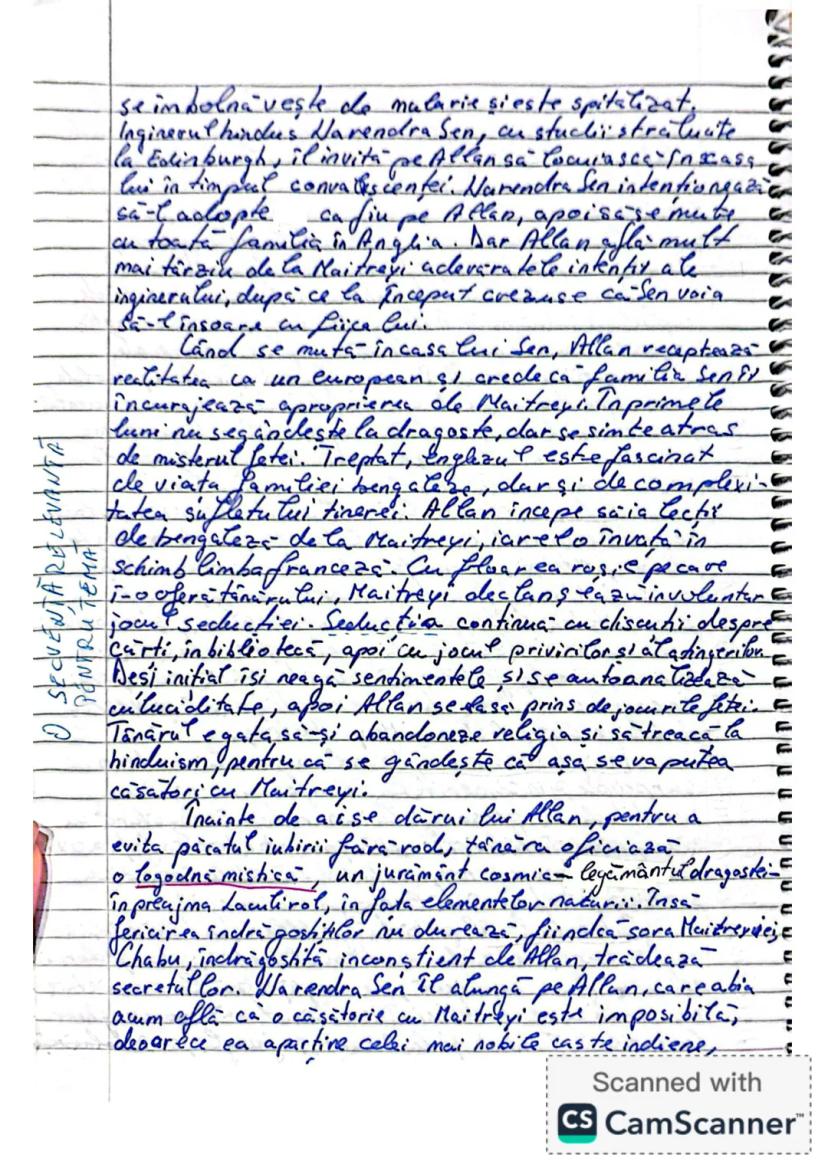 se îmbolnăvește de malarie și este spitalizat.
Inginerul hindus Narendra Sen, cu studii strălucite
la Edinburgh, îl invită pe Allan să locuiască în casa
lui în timpul convalescenței. Narendra Sen intenționează
să-l adopte ca fiu pe Allan, apoi să se mute
cu toată familia în Anglia. Dar Allan află mult
mai târziu de la Maitreyi adevăratele intenții ale
inginerului, după ce la început crezuse că Sen voia
să-l însoare cu fiica lui.
Când se mută în casa lui Sen, Allan receptează
realitatea ca un european și crede că familia Sen îi
încurajează aproprierea de Maitreyi. În primele
luni nu se gândește la dragoste, dar se simte atras
de misterul fetei. Treptat, englezul este fascinat
de viața familiei bengaleze, dar și de complexi-
tatea sufletului tinerei. Allan începe să ia lecții
de bengaleză de la Maitreyi, iar el o învață în
schimb limba franceză. Cu floarea roșie pe care
i-o oferă tânărului, Maitreyi declanșează involuntar
jocul seducției. Seducția continuă cu discuții despre
cărți, în bibliotecă, apoi cu jocul privirilor și al atingerilor.
Deși inițial își neagă sentimentele și se autoanalizează
cu luciditate, apoi Allan se lasă prins de jocurile fetei.
Tânărul e gata să-și abandoneze religia și să treacă la
hinduism, pentru că se gândește că așa se va putea
căsători cu Maitreyi.
Înainte de a i se dărui lui Allan, pentru a
evita păcatul iubirii fără rod, tânăra oficiază
o logodnă mistică, un jurământ cosmic - legământul dragostei-
în preajma Lacurilor, în fața elementelor naturii. Însă
fericirea îndrăgostiților nu durează, fiindcă sora Maitreyiei,
Chabu, îndrăgostită inconștient de Allan, trădează
secretul lor. Narendra Sen îl alungă pe Allan, care abia
acum află că o căsătorie cu Maitreyi este imposibilă,
deoarece ea aparține celei mai nobile caste indiene,
1) SECVENȚĂ RELEVANTĂ
PENTRU TEMĂ
Scanned with
CS CamScanner™